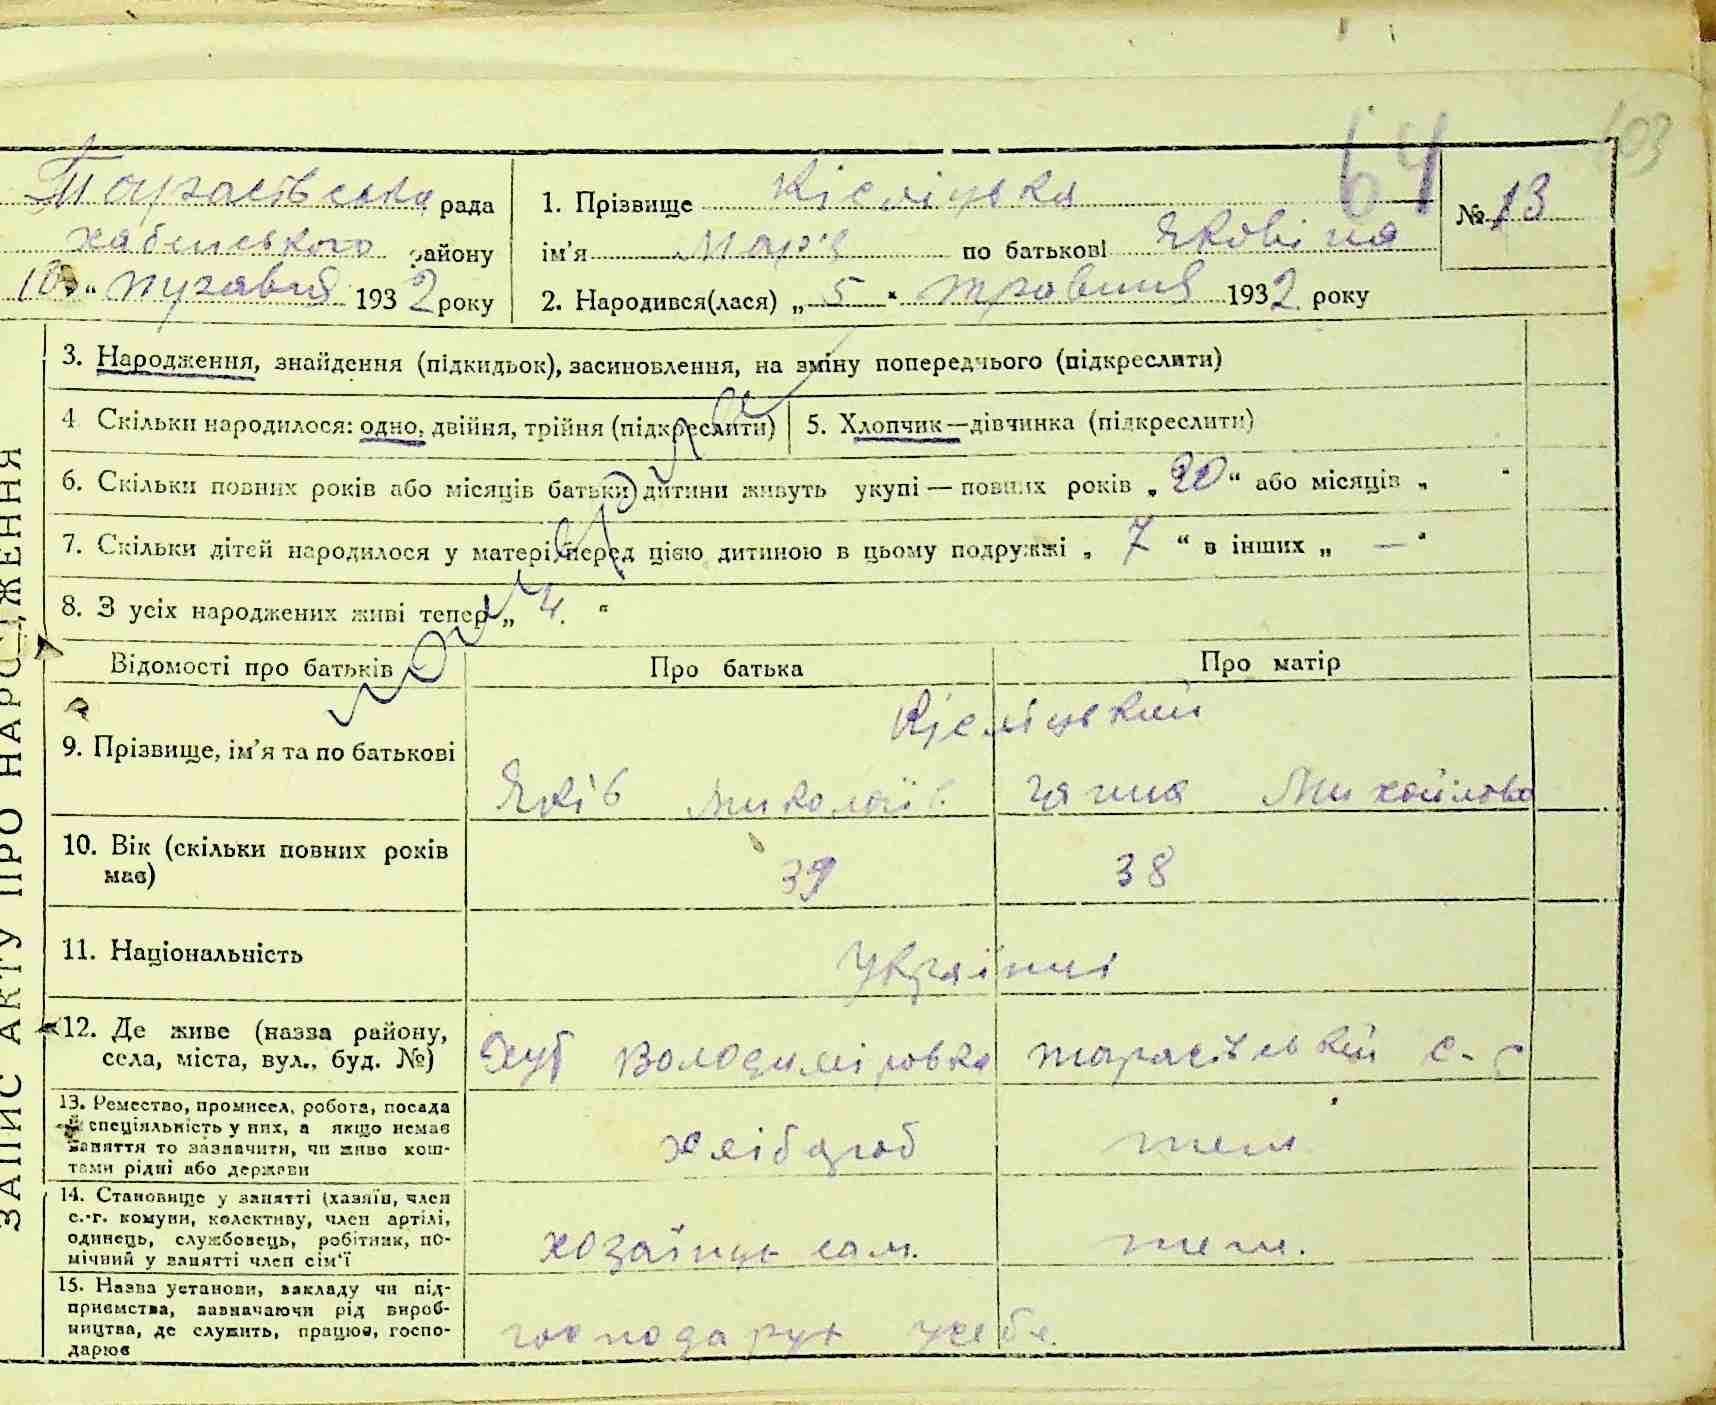 64
103
Тарасівська рада
хабенського району
10 " травня 1932 року
1. Прізвище Кіслицька
ім'я Мар'я по батькові Яковівна
2. Народився(лася) „ 5 " травння 1932 року
№ 13
3. Народження, знайдення (підкидьок), засиновлення, на зміну попереднього (підкреслити)
4 Скільки народилося: одно, двійня, трійня (підкреслити)
5. Хлопчик—дівчинка (підкреслити)
6. Скільки повних років або місяців батьки дитини живуть укупі — повних років „ 20 " або місяців „ "
7. Скільки дітей народилося у матері перед цією дитиною в цьому подружжі „ 7 " в інших „ — "
8. З усіх народжених живі тепер „ 4. "
Відомості про батьків
Про батька
Про матір
9. Прізвище, ім'я та по батькові
Кісліцький
Яків Миколаїв
Ганна Михайлова
10. Вік (скільки повних років має)
39
38
11. Національність
Українці
12. Де живе (назва району, села, міста, вул., буд. №)
Хут Володиміровка Тарасівській с-р
13. Ремество, промисел, робота, посада й спеціяльність у них, а якщо немає заняття то зазначити, чи живе коштами рідні або держави
хлібороб
14. Становище у занятті (хазяїн, член с.-г. комуни, колективу, член артілі, одинець, службовець, робітник, помічний у занятті член сім'ї
сам.
15. Назва установи, закладу чи підприємства, зазначаючи рід виробництва, де служить, працює, господарює
господарує усебе.
ЗАПИС АКТУ ПРО НАРОДЖЕННЯ